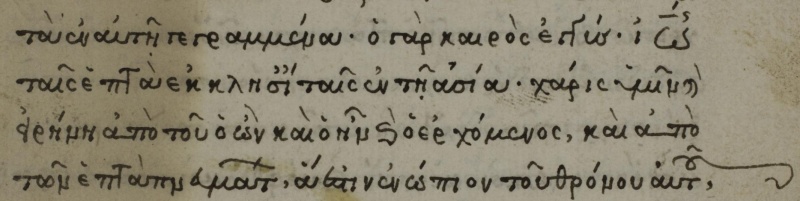 τὰ ἐν αὐτῇ γεγραμμένα· ὁ γὰρ καιρὸς ἐγγύς· ἰω
ταῖς ἑπτὰ ἐκκλησί ταῖς ἐν τῇ ἀσία· χάρις ὑμῖν κ
εἰρήνη ἀπὸ τοῦ ὁ ὢν καὶ ὁ ἦν κ ὁ ἐρχόμενος, καὶ ἀπὸ
τῶν ἑπτὰ πνματ, ἅ ἐστιν ἐνώπιον τοῦ θρόνου αὐτ,